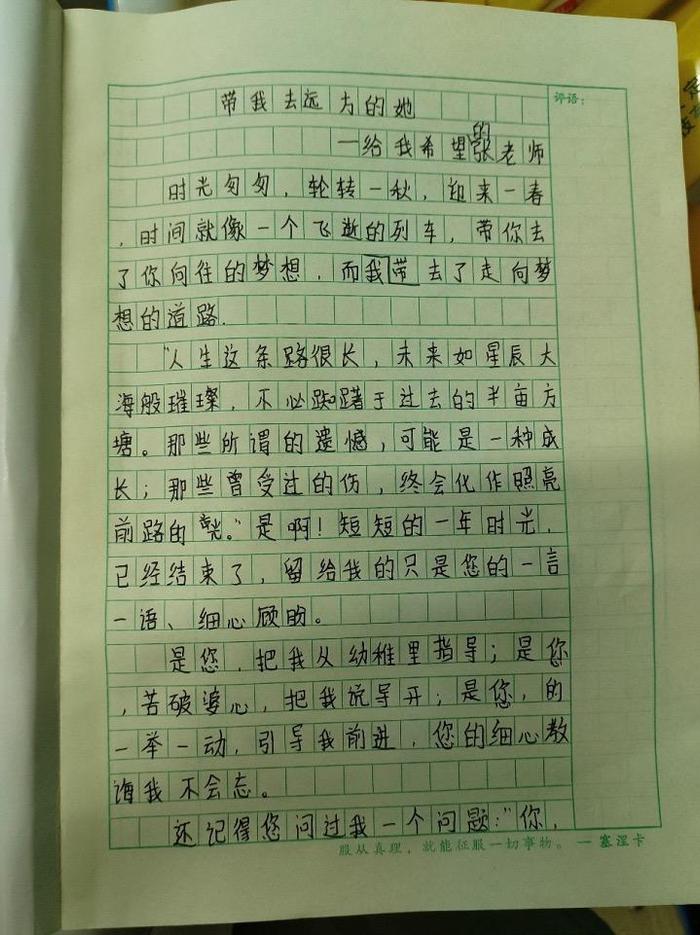 评语：
带我去远方的她
—给我希望的张老师
时光匆匆，轮转一秋，迎来一春
，时间就像一个飞逝的列车，带你去
了你向往的梦想，而我带去了走向梦
想的道路.
“人生这条路很长，未来如星辰大
海般璀璨，不必踟躇于过去的半亩方
塘。那些所谓的遗憾，可能是一种成
长；那些曾受过的伤，终会化作照亮
前路的光。”是啊！短短的一年时光，
已经结束了，留给我的只是您的一言
一语、细心顾盼。
是您，把我从幼稚里指导；是您
，苦破婆心，把我说导开；是您，的
一举一动，引导我前进，您的细心教
诲我不会忘。
还记得您问过我一个问题：“你，
服从真理，就能征服一切事物。 — 塞涅卡